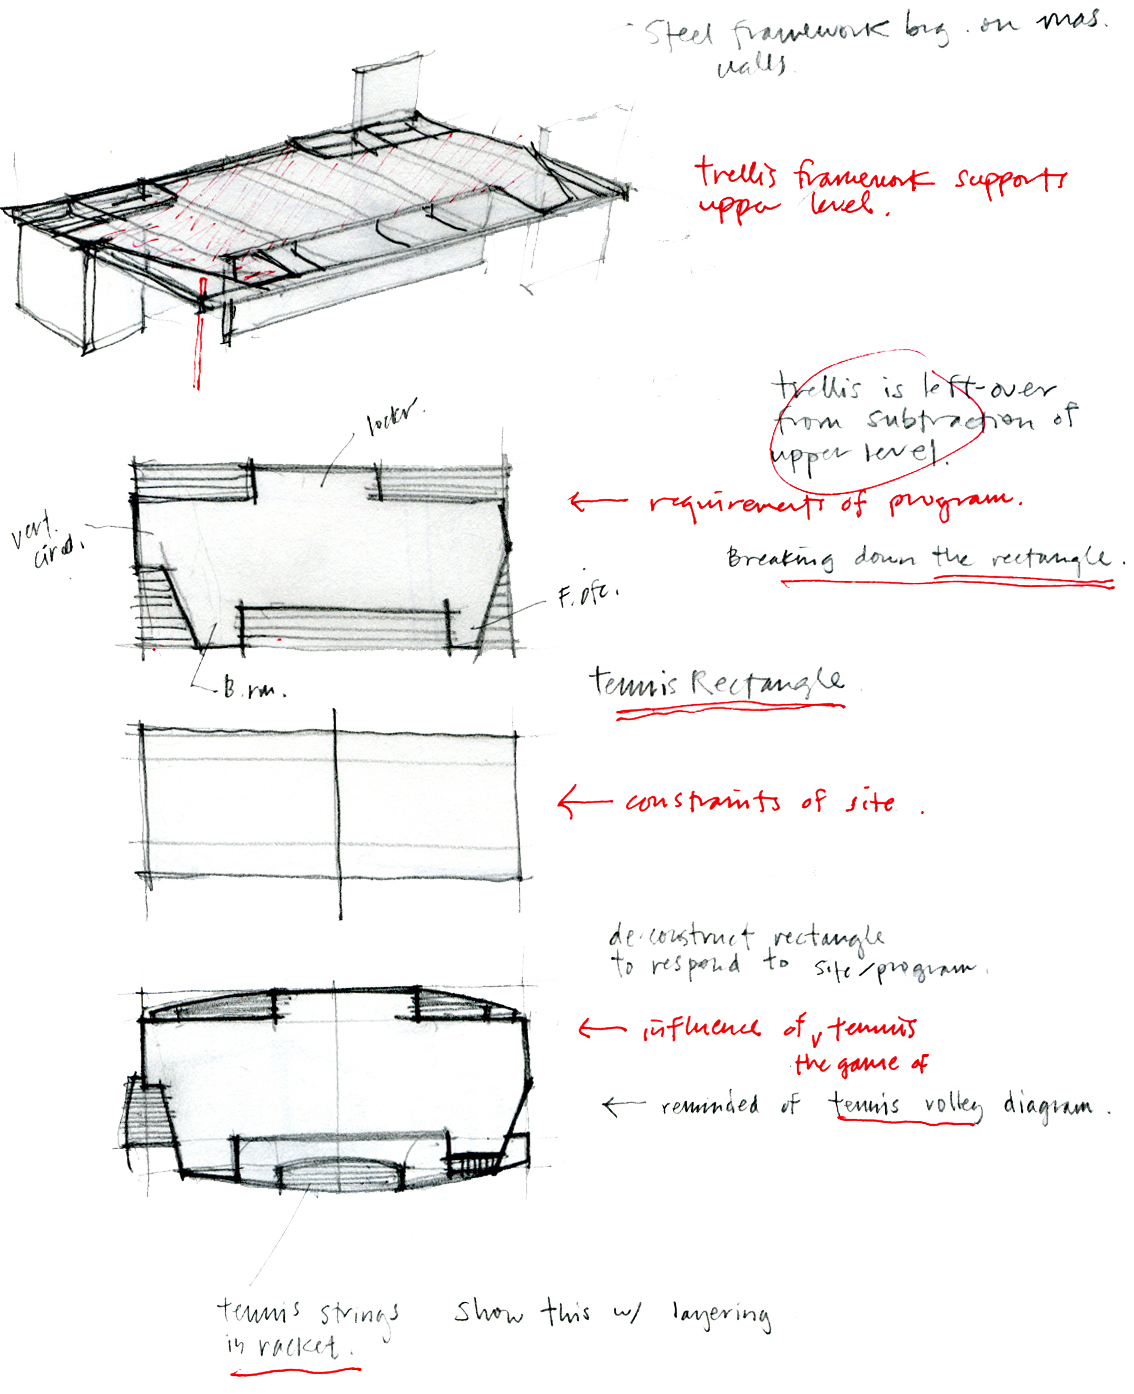 Steel framework brg. on mas.
walls.
trellis framework supports
upper level.
trellis is left-over
from subtraction of
upper level.
lockr.
requirements of program.
vert.
circ.
Breaking down the rectangle.
F. ofc.
B. rm.
tennis Rectangle
constraints of site.
de-construct rectangle
to respond to site/program.
influence of tennis
the game of
reminded of tennis volley diagram.
tennis strings show this w/ layering
in racket.